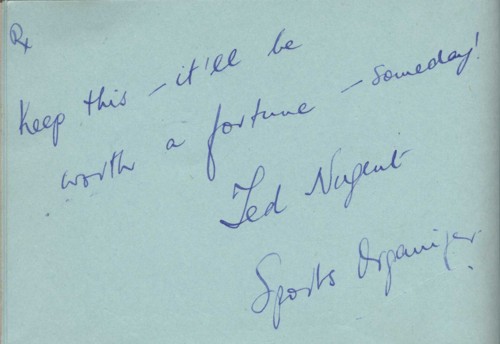 Rx
Keep this – it'll be
worth a fortune – someday!
Ted Nugent
Sports Organiser.